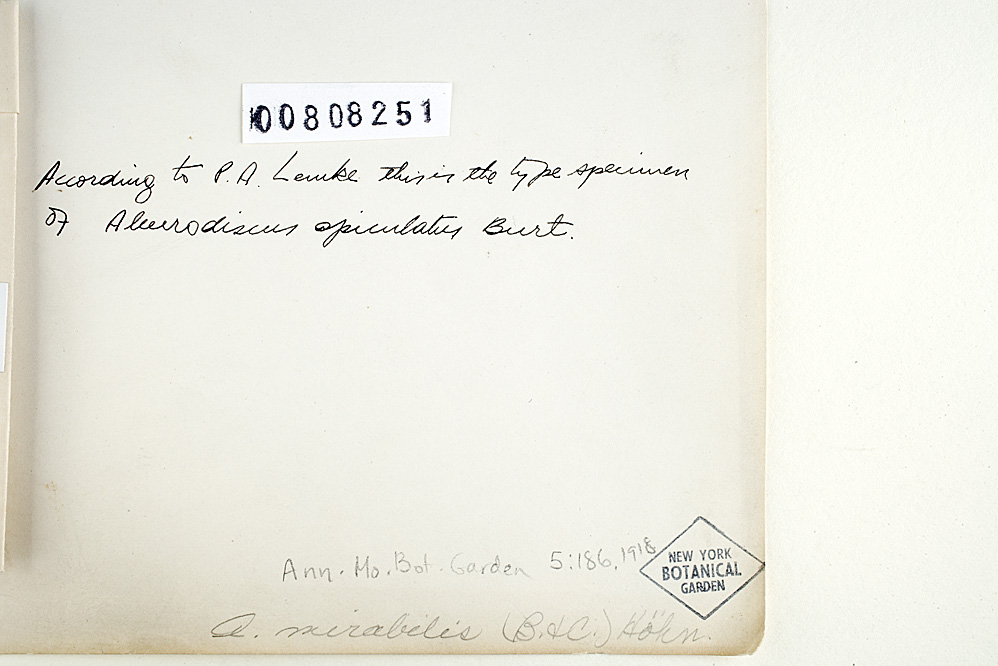 00808251
According to P.A. Lemke this is the type specimen
of Aleurodiscus apiculatus Burt.
Ann. Mo. Bot. Garden 5:186, 1918
NEW YORK
BOTANICAL
GARDEN
A. mirabilis (B. & C.) Höhn.